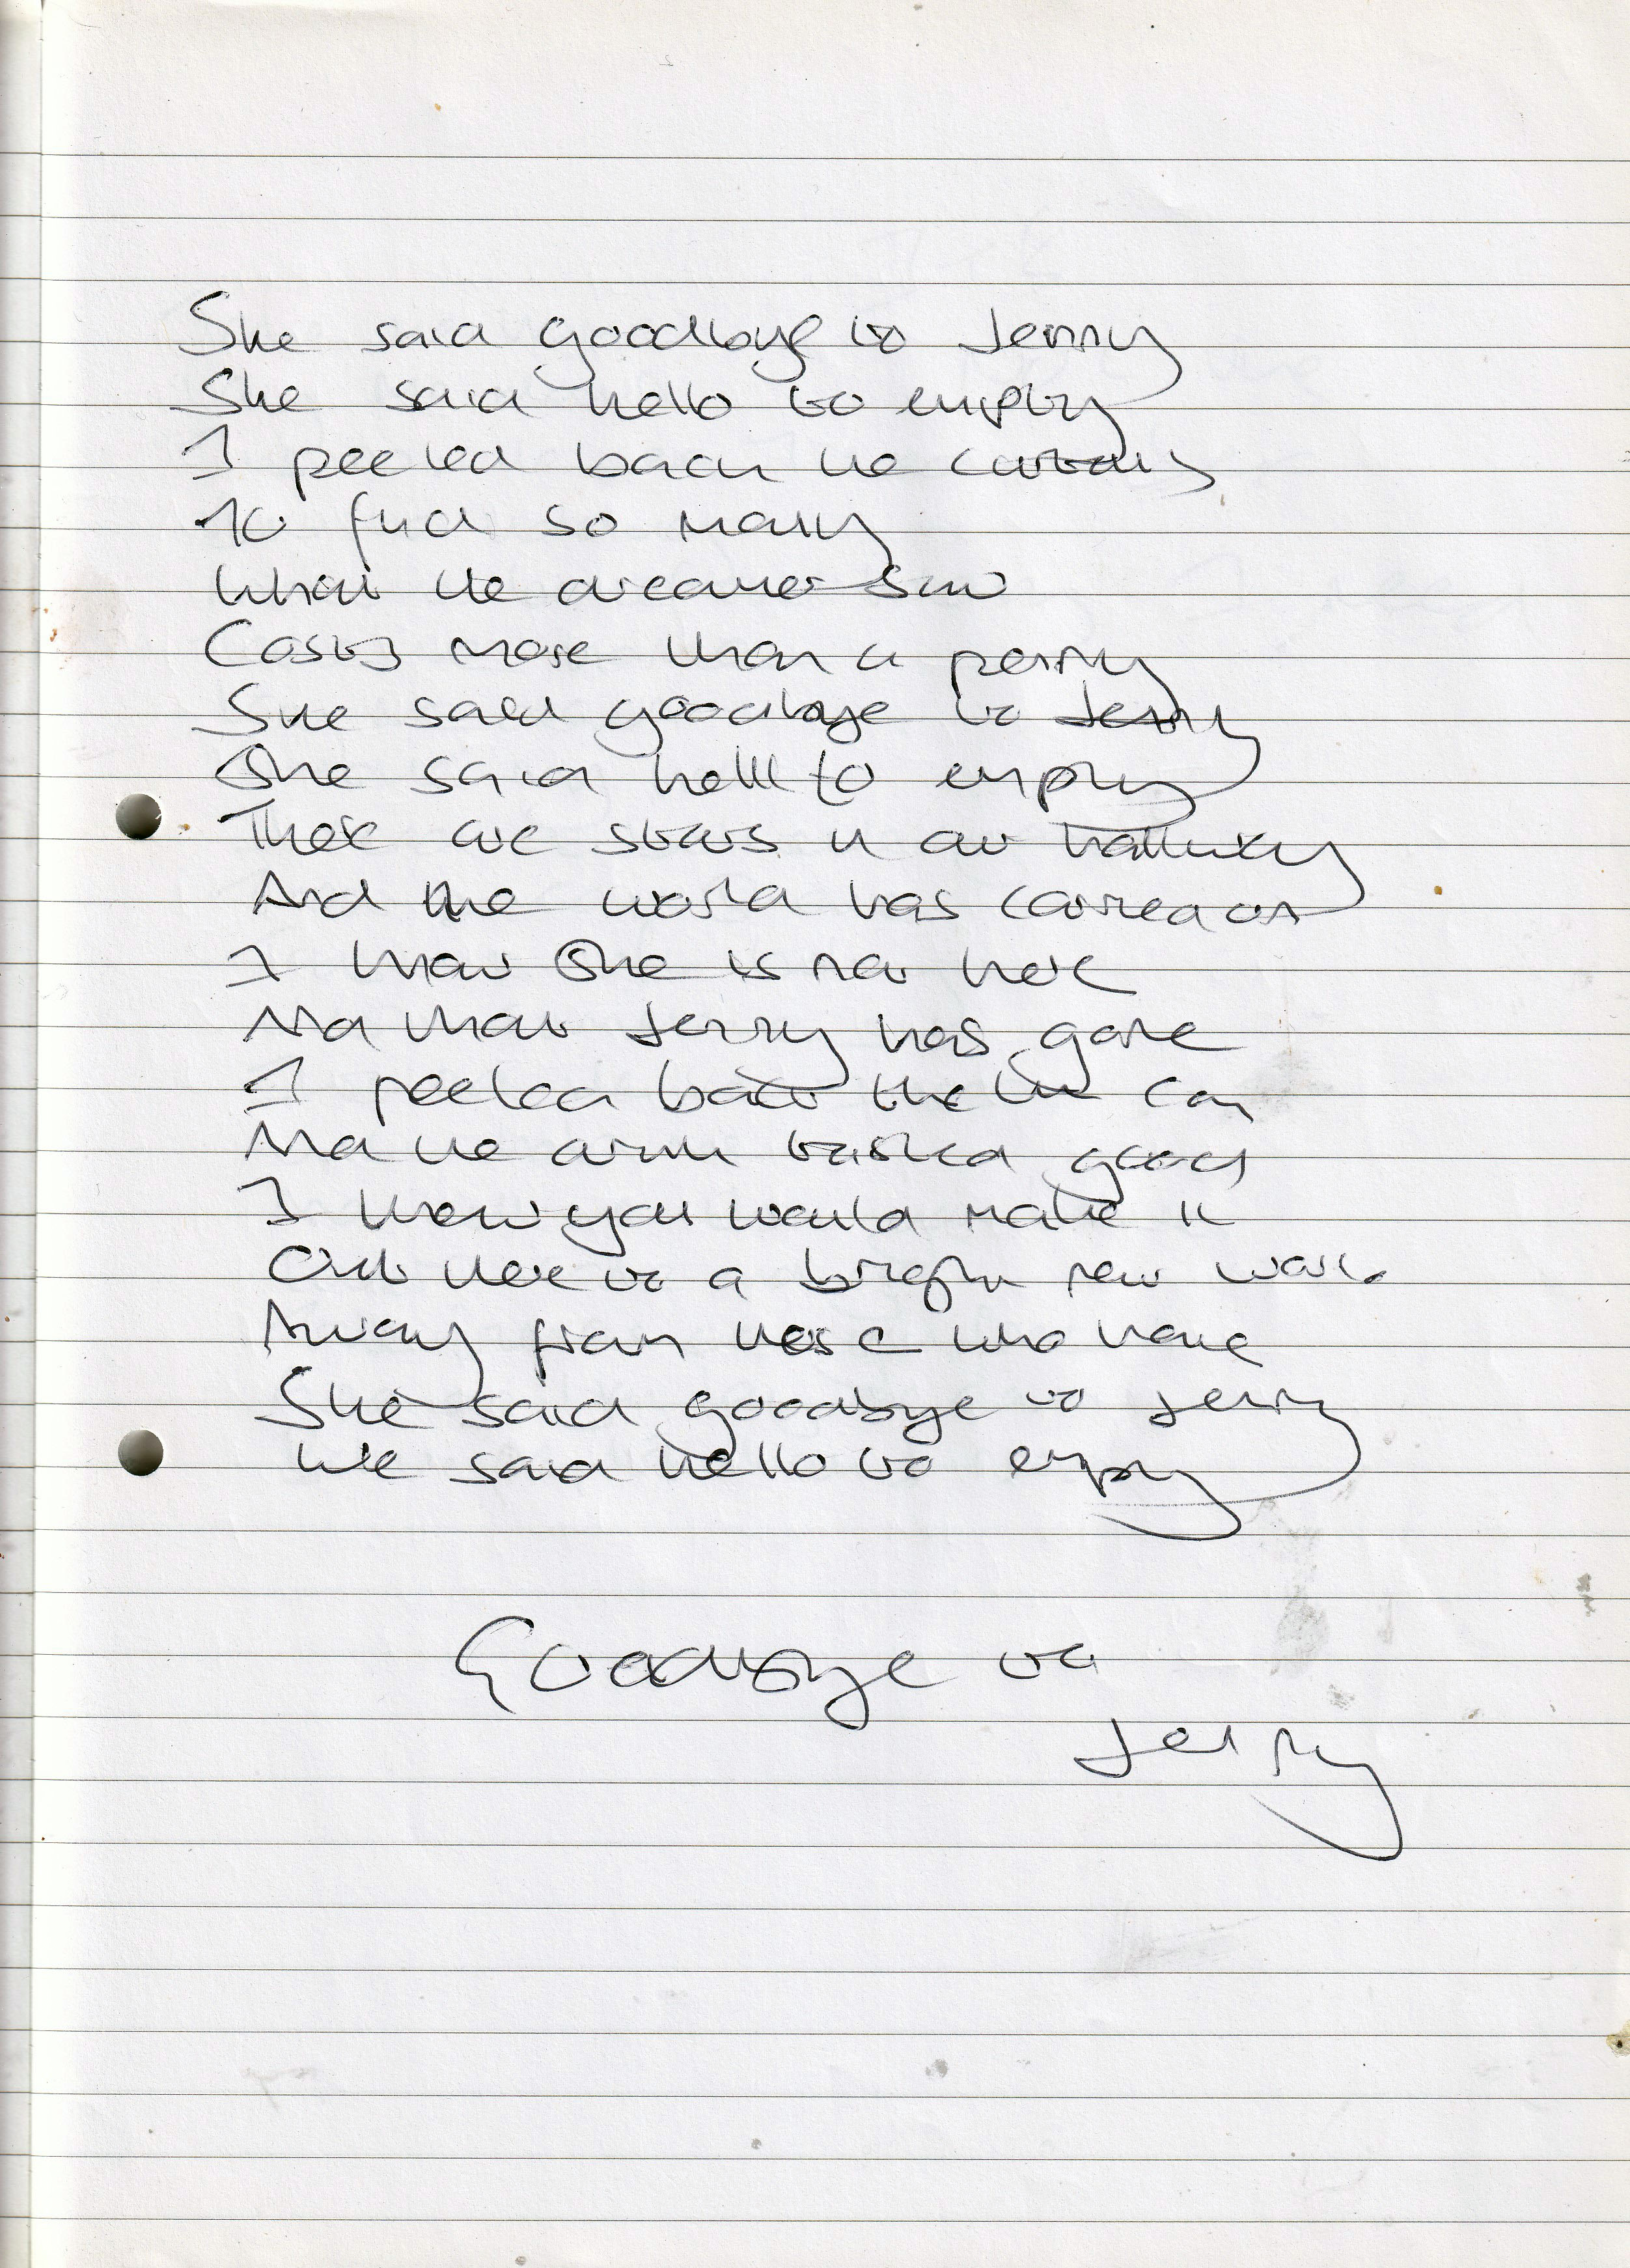 She said goodbye to Jenny
She said hello to empty
I peeled back the curtains
To find so many
What the dreamer saw
Costs more than a penny
She said goodbye to Jenny
She said hello to empty
There are stars in our
And the world has carried on
I know she is not here
Now that Jenny has gone
I peeled back the can
And the drink tasted good
I knew you would make it
Out there to a bright new world
Away from those who have
She said goodbye to Jenny
We said hello to empty
Goodbye to
Jenny